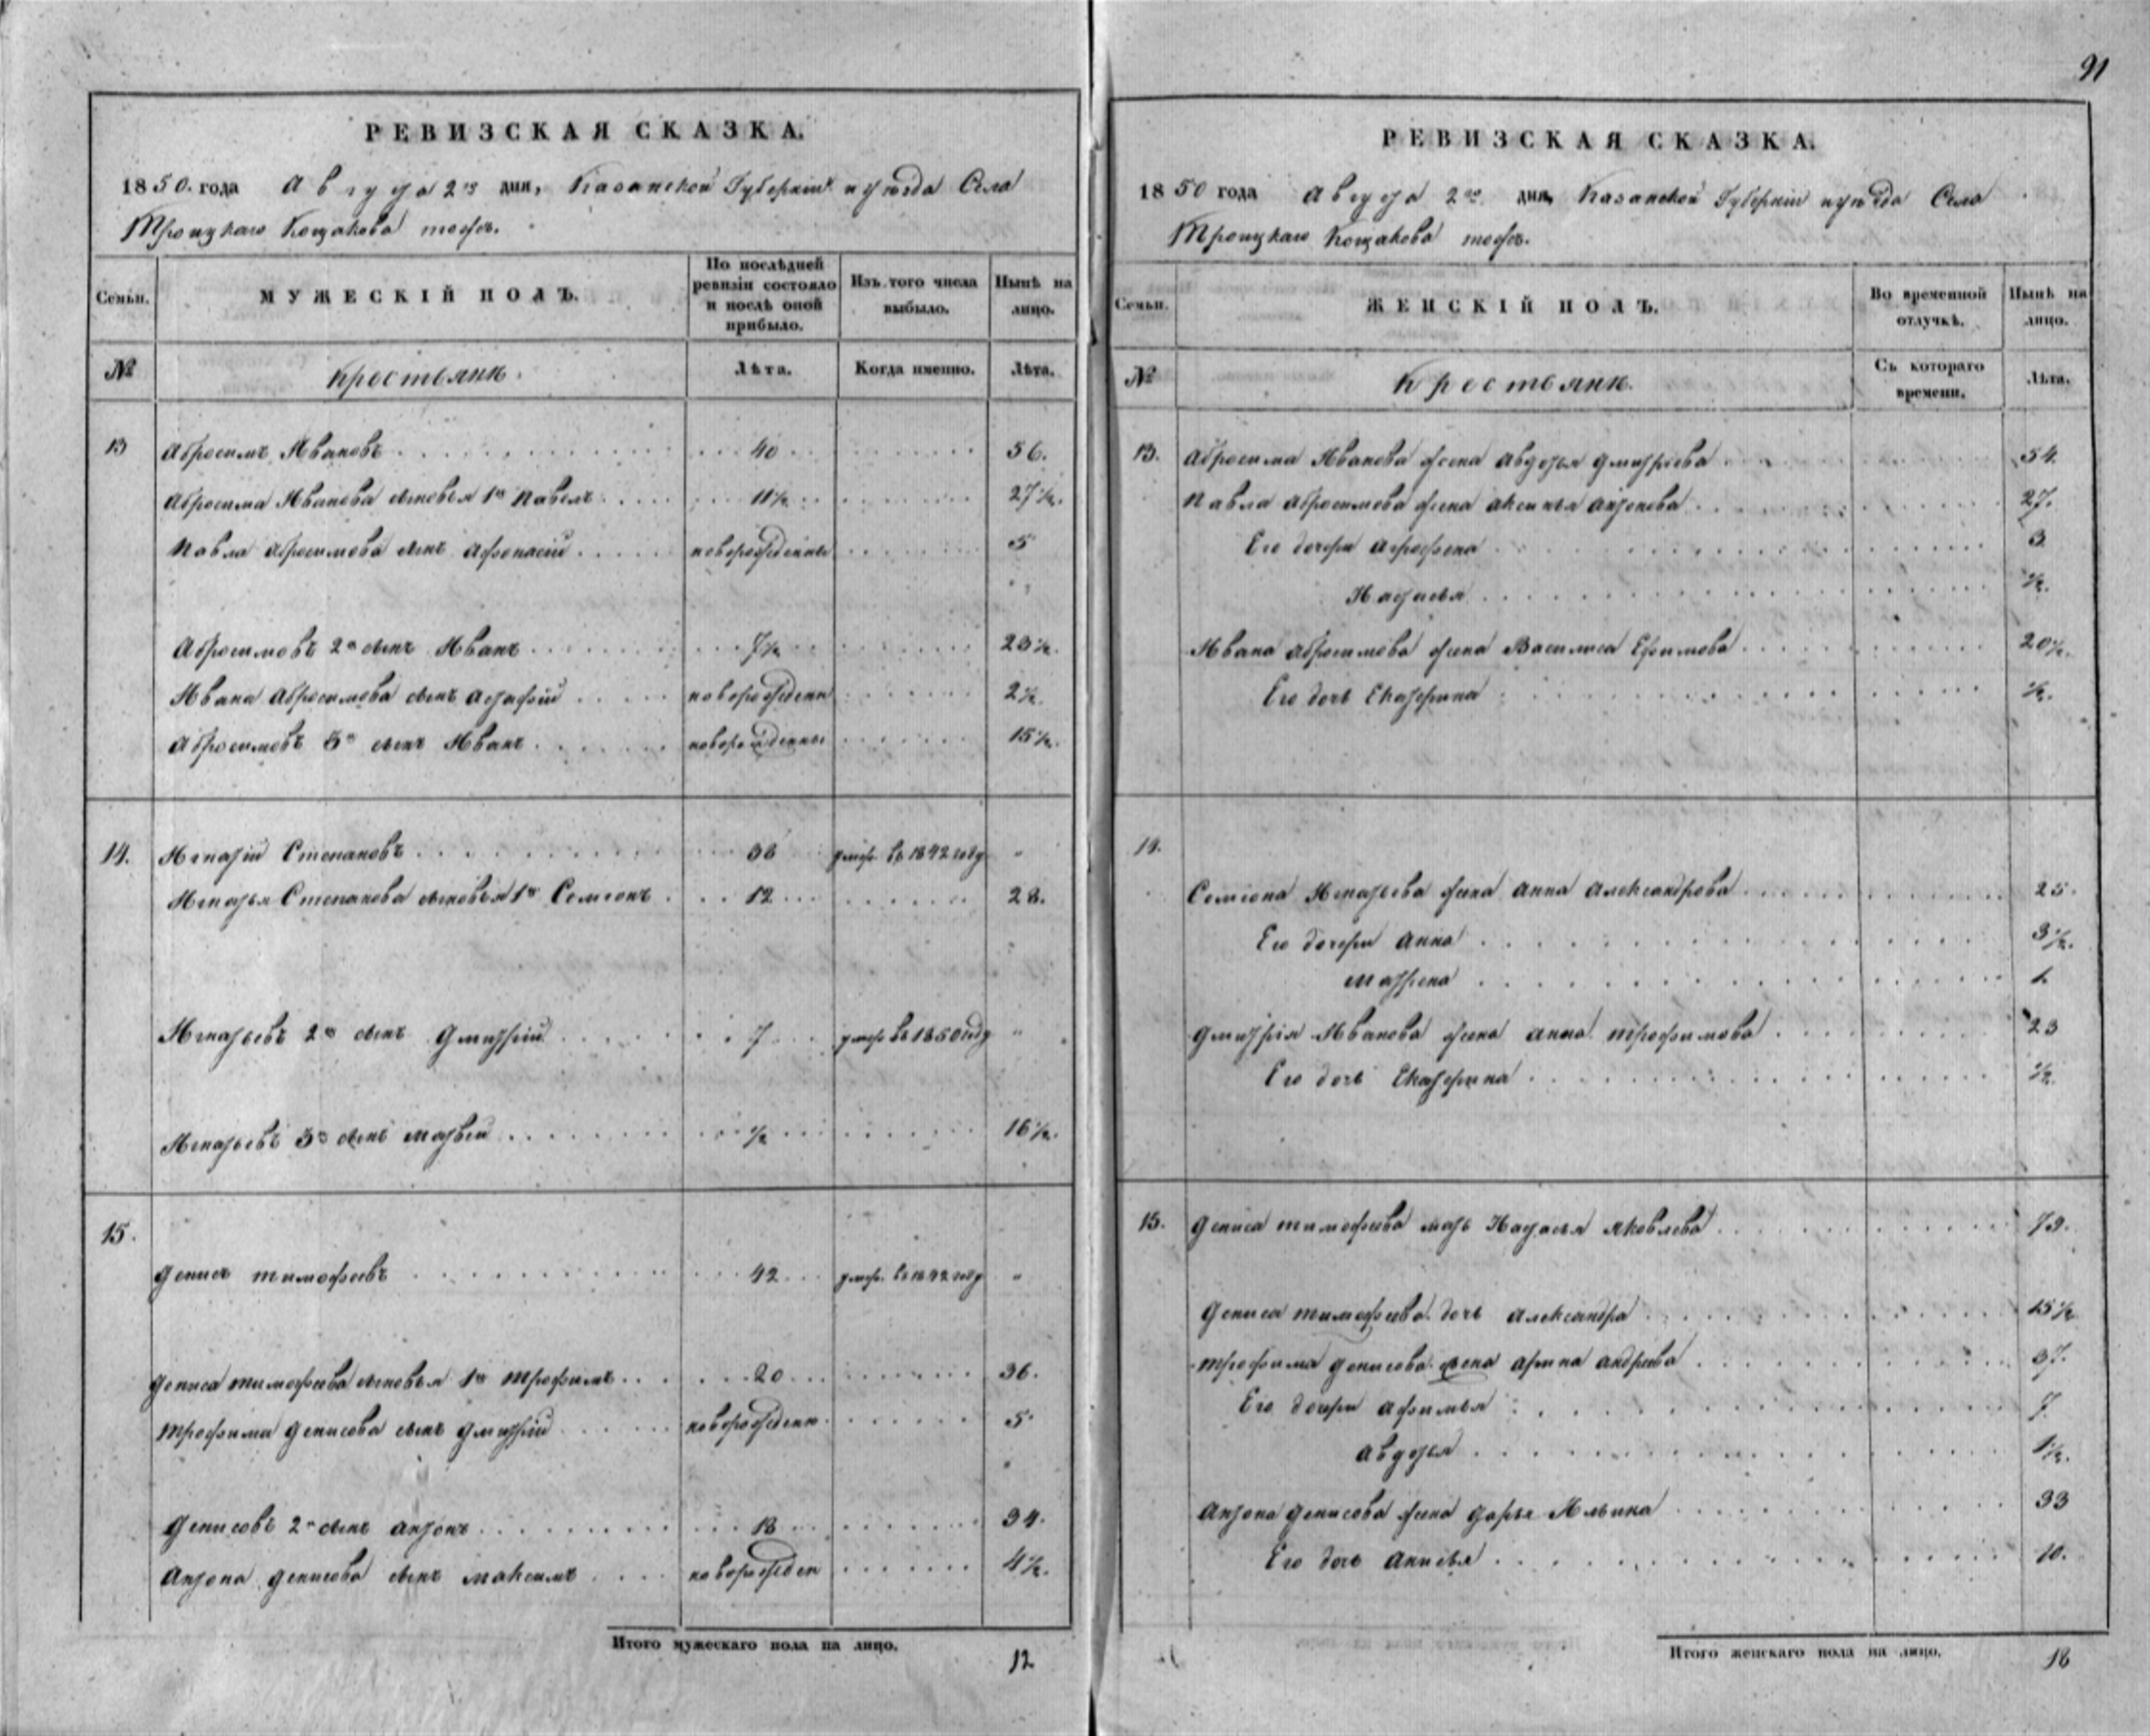 РЕВИЗСКАЯ СКАЗКА.
1850. года Августа 2го дня, Казанской Губернии и уѣзда Села
Троицкаго Кощакова тожъ.
Семьи.
МУЖЕСКІЙ ПОЛЪ.
По послѣдней ревизіи состояло и послѣ оной прибыло.
Изъ того числа выбыло.
Нынѣ на лицо.
№
Крестьянъ.
Лѣта.
Когда именно.
Лѣта.
13 Абросимъ Ивановъ 40 56.
Абросима Иванова сыновья 1й Павелъ 11½ 27½.
Павла Абросимова сынъ Афонасій новорожденны 5
Абросимовъ 2й сынъ Иванъ 7½ 23½.
Ивана Абросимова сынъ новорожденн 2½
Абросимовъ 3й сынъ Иванъ новорожденны 15½.
14. Игнатій Степановъ 38 умеръ въ 1842 году "
Игнатья Степанова сыновья 1й Семіонъ 12 28.
Игнатьевъ 2й сынъ Дмитрій 7 умеръ въ 1850 году "
Игнатьевъ 3й сынъ Матвей ½ 16½.
15.
Денисъ Тимофеевъ 42 умеръ въ 1842 году "
Дениса Тимофеева сыновья 1й Трофимъ 20 36.
Трофима Денисова сынъ Дмитрій новорожденн 5
Денисовъ 2й сынъ Антонъ 18 34.
Антона Денисова сынъ Максимъ новорожден 4½.
Итого мужескаго пола на лицо. 12
91
РЕВИЗСКАЯ СКАЗКА.
1850 года Августа 2го дня, Казанской Губерніи и уѣзда Села
Троицкаго Кощакова тожъ.
Семьи.
ЖЕНСКІЙ ПОЛЪ.
Во временной отлучкѣ.
Нынѣ на лицо.
№
Крестьянъ.
Съ котораго времени.
Лѣта.
13. Абросима Иванова жена Авдотья Дмитріева 54
Павла Абросимова жена Аксинья Антонова 27.
Его дочери Аграфена 3
Настасья ½.
Ивана Абросимова жена Василиса Ефимова 20½.
Его дочь Екатерина ½.
14.
Семіона Игнатьева жена Анна Александрова 25.
Его дочери Анна 3½.
Матрена 1.
Дмитрія Иванова жена Анна Трофимова 23
Его дочь Екатерина ½.
15. Дениса Тимофеева мать Настасья Яковлева 79.
Дениса Тимофеева дочь Александра 15½
Трофима Денисова жена Арина Андреева 37.
Его дочери Афимья 7.
Авдотья 1½.
Антона Денисова жена Дарья Ильина 33
Его дочь Анисья 10.
Итого женскаго пола на лицо. 18